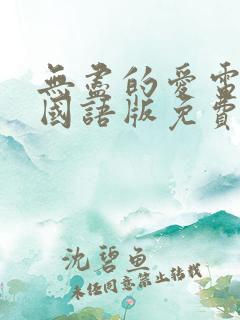 無盡的愛電
國語版免費
沈碧魚
未經同意禁止轉載